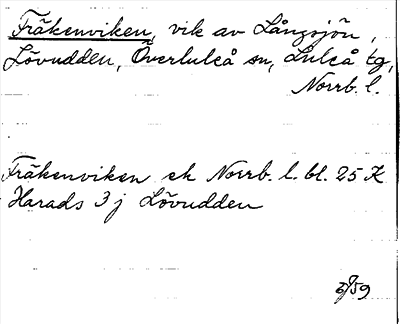 Fräkenviken, vik av Långsjön,
Lövudden, Överluleå sn, Luleå tg,
Norrb. l.
Fräkenviken ek Norrb. l. bl. 25 K
Harads 3 j Lövudden